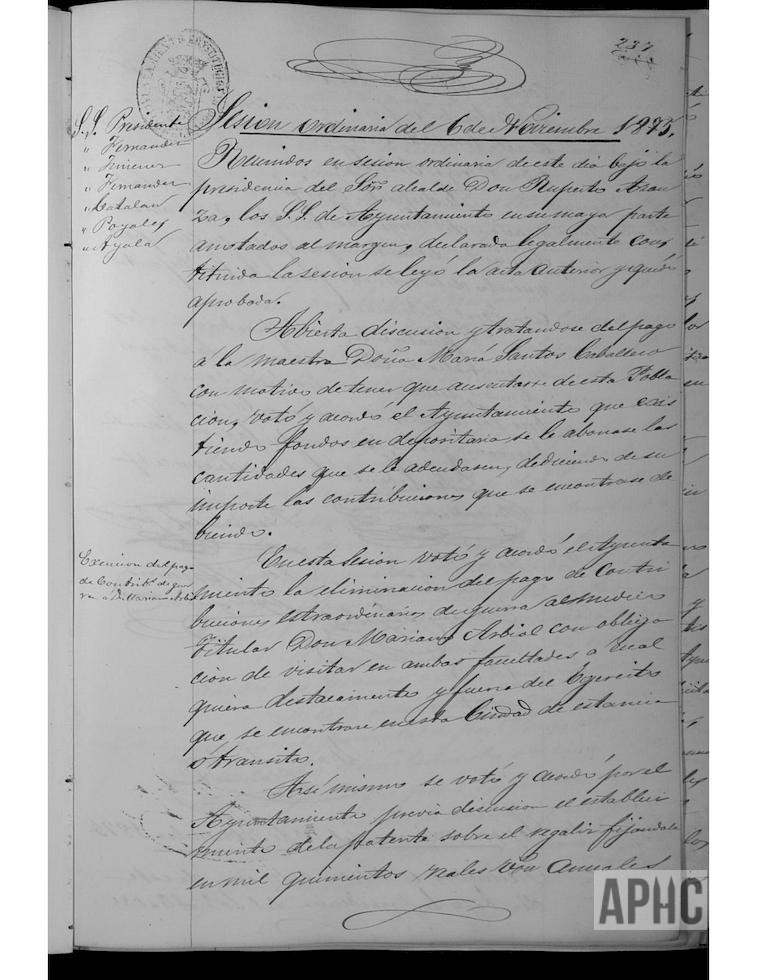 237
S. S. Presidente
" Fernandez
" Jimenez
" Fernandez
" Catalan
" Poyales
" Ayala
Sesion ordinaria del 6 de Noviembre 1875.
Reunidos en sesion ordinaria de este dia bajo la
presidencia del Sor. alcalde Don Ruperto Aran
za, los S.S. de Ayuntamiento en su mayor parte
anotados al margen, declarada legalmente cons
tituida la sesion se leyó la acta anterior y quedó
aprobada.
Abierta discusion y tratandose del pago
a la maestra Doña Maria Santos Caballero
con motivo de tener que ausentarse de esta Pobla
cion, votó y acordó el Ayuntamiento que ecsis
tiendo fondos en depositaria se le abonase las
cantidades que se le adeudasen, deduciendo de su
importe las contribuciones que se encontrase de
biendo.
Exencion del pago
de Contribs. de guer
ra a D. Mariano Arbiol
En esta sesion votó y acordó el Ayunta
miento la eliminacion del pago de Contri
buciones estraordinarias de guerra al medico
Titular Don Mariano Arbiol con obliga
cion de visitar en ambas facultades a cual
quiera destacamento y fuerza del Egercito
que se encontrare en esta Ciudad de estancia
ó transito.
Asi mismo se votó y acordó por el
Ayuntamiento previa discusion el estableci
miento de la patente sobre el regaliz fijandola
en mil quinientos reales von anuales
APHC